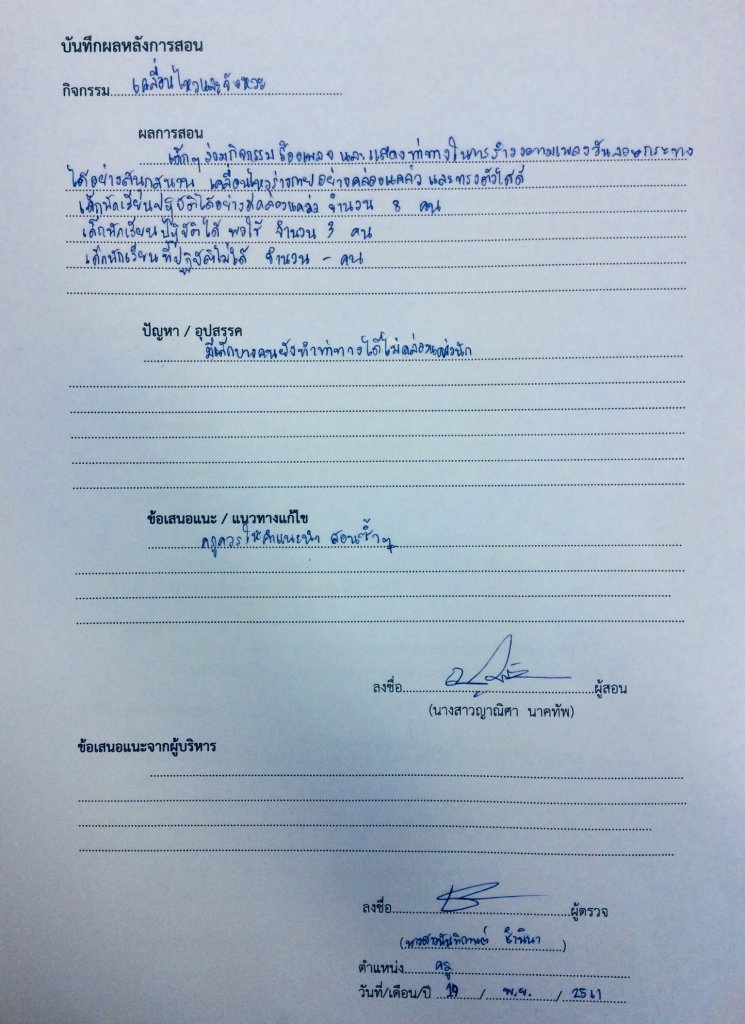 บันทึกผลหลังการสอน
กิจกรรม เคลื่อนไหวและจังหวะ
ผลการสอน
เด็กๆ ร่วมกิจกรรมร้องเพลง และแสดงท่าทางในการรำวงตามเพลงวันลอยกระทง
ได้อย่างสนุกสนาน เคลื่อนไหวร่างกายอย่างคล่องแคล่ว และทรงตัวได้ดี
เด็กนักเรียนปฏิบัติได้อย่างคล่องแคล่ว จำนวน 8 คน
เด็กนักเรียน ปฏิบัติได้ พอใช้ จำนวน 3 คน
เด็กนักเรียน ที่ปฏิบัติไม่ได้ จำนวน - คน
ปัญหา / อุปสรรค
มีเด็กบางคนยังทำท่าทางได้ไม่คล่องแคล่วนัก
ข้อเสนอแนะ / แนวทางแก้ไข
ครูควรให้คำแนะนำ สอนซ้ำๆ
ลงชื่อ ผู้สอน
(นางสาวญาณิศา นาคทัพ)
ข้อเสนอแนะจากผู้บริหาร
ลงชื่อ ผู้ตรวจ
(นางสาว )
ตำแหน่ง ครู
วันที่/เดือน/ปี 19 / พ.ย. / 2561